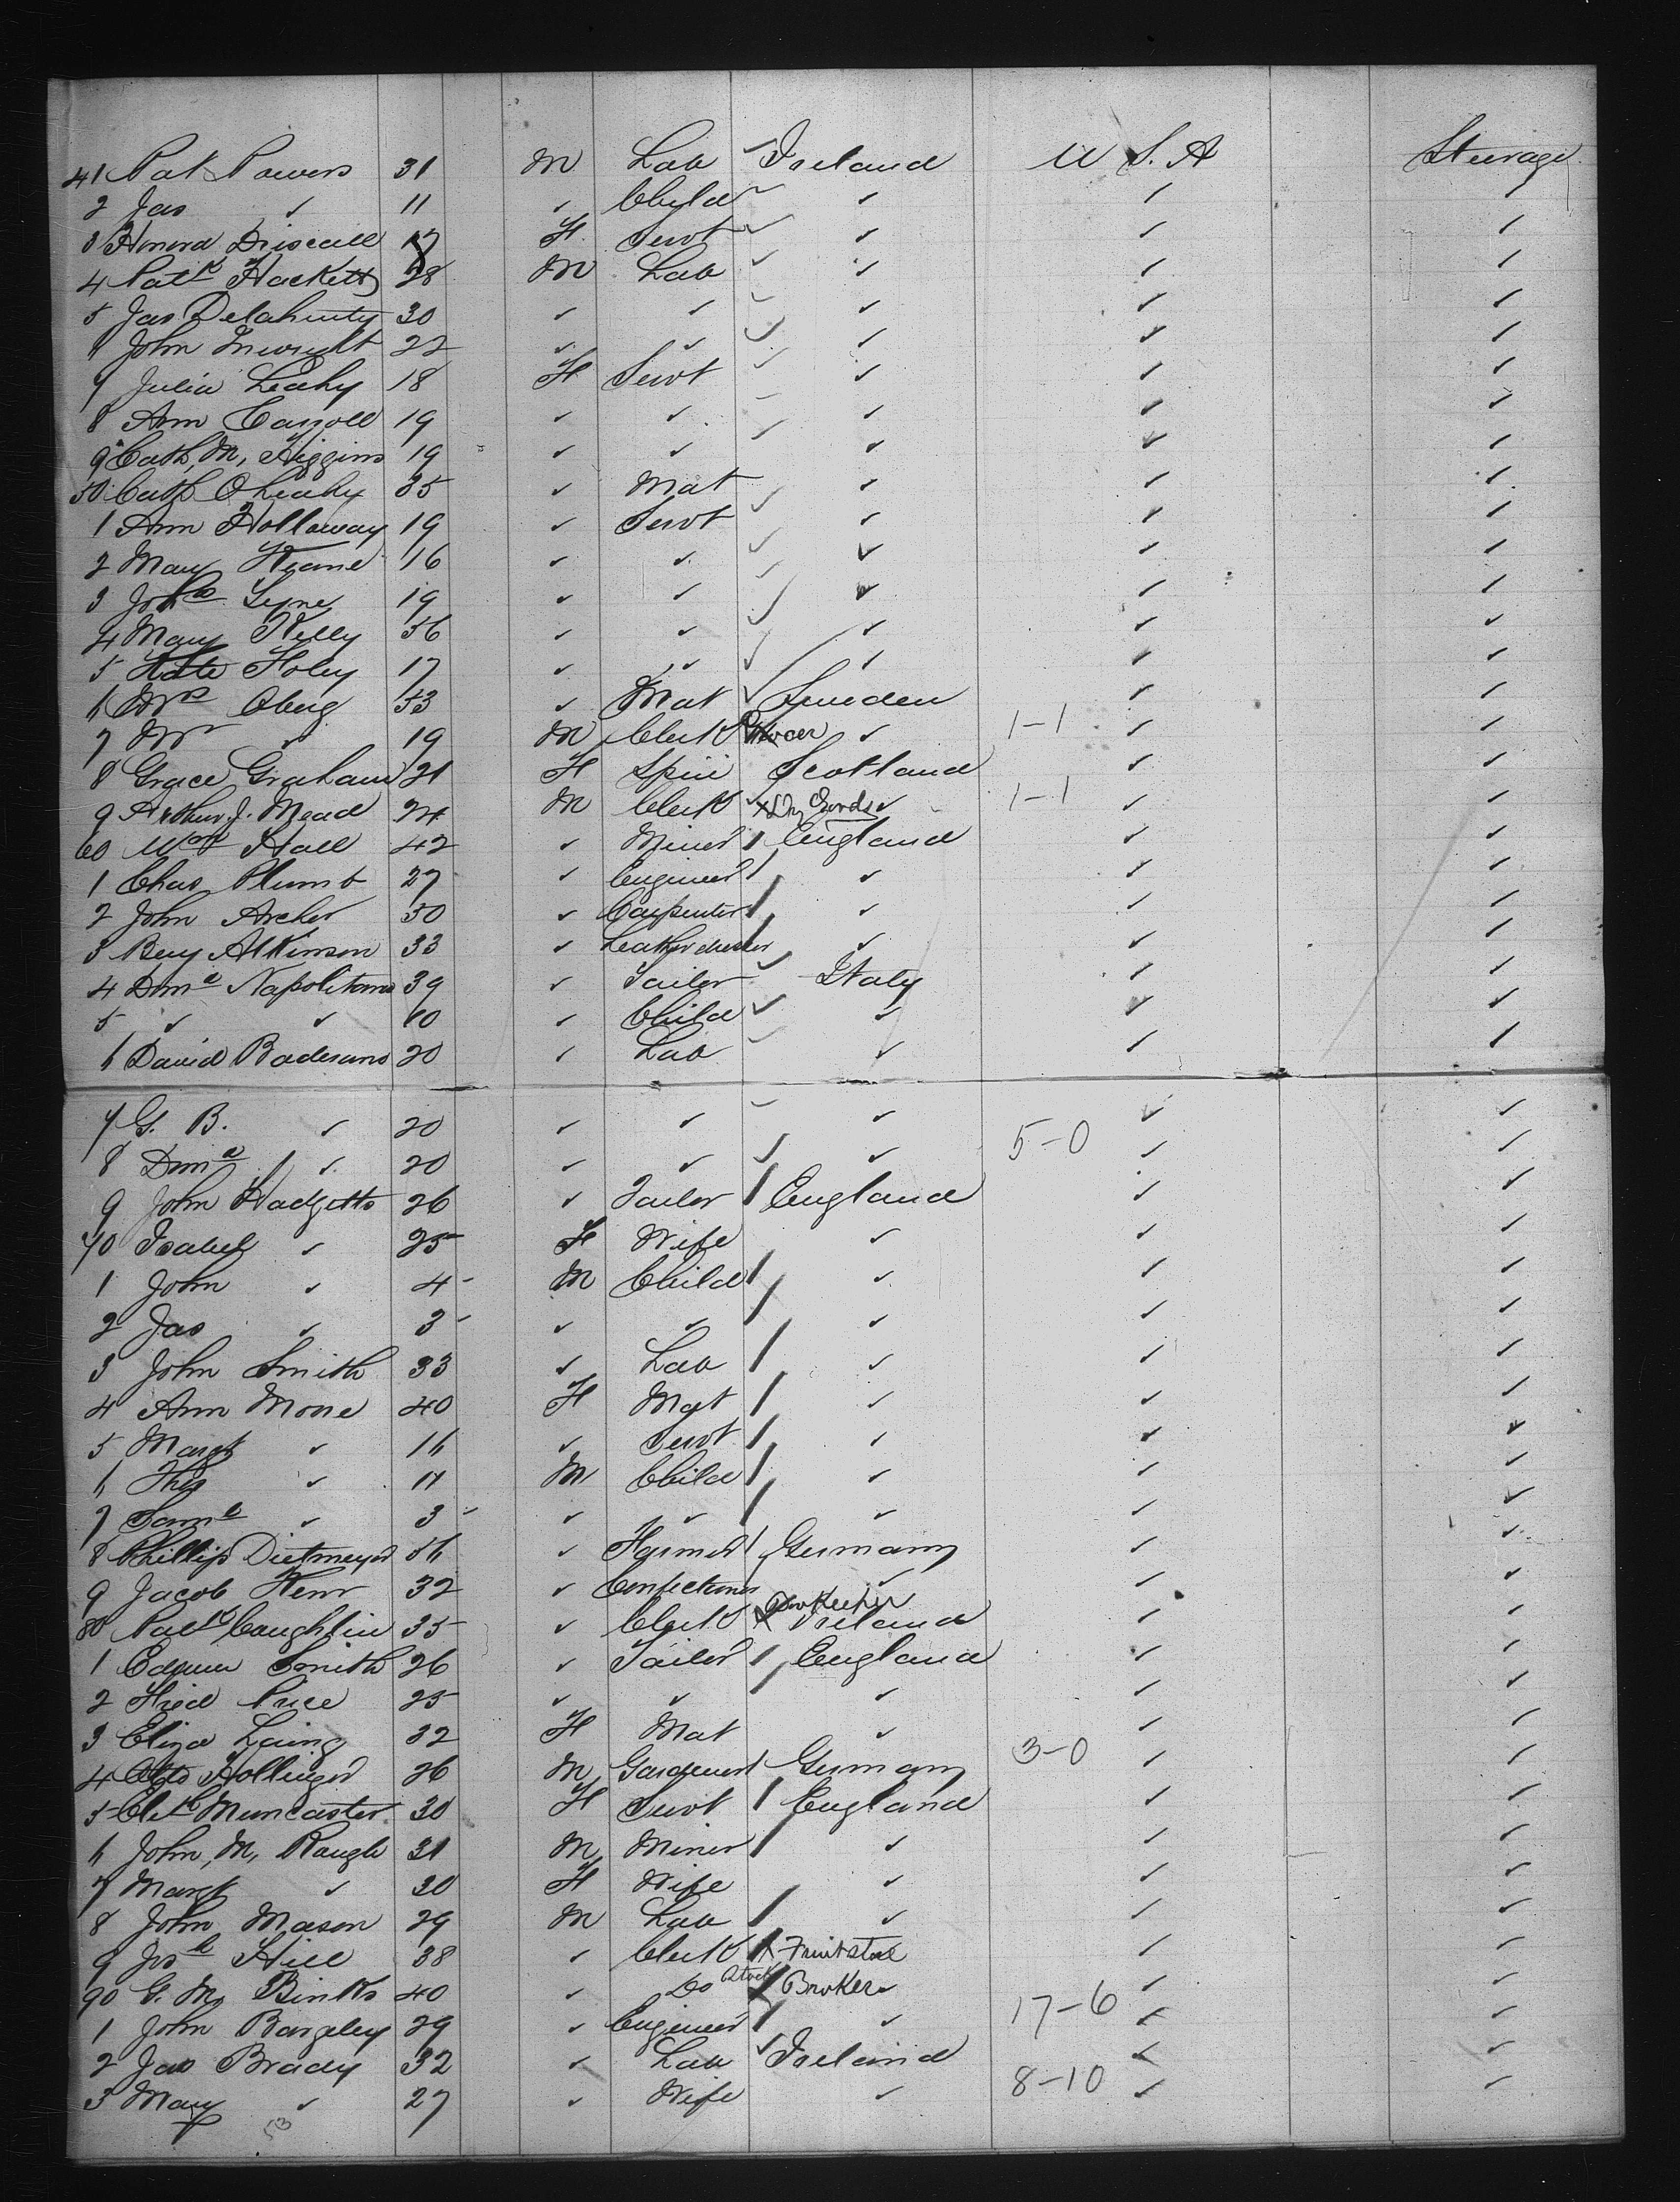 41 Pat Powers 31 M Lab ✓ Ireland U S. A Steerage
2 Jas ✓ 11 ✓ Child ✓ ✓ ✓ ✓
3 Honora Driscoll 17 F Servt ✓ ✓ ✓ ✓
4 Patk Hackett 28 M Lab ✓ ✓ ✓ ✓
5 Jas Delahunty 30 ✓ ✓ ✓ ✓ ✓ ✓
6 John 22 ✓ ✓ ✓ ✓ ✓ ✓
7 Julia Leahy 18 F Servt ✓ ✓ ✓ ✓
8 Ann Carroll 19 ✓ ✓ ✓ ✓ ✓ ✓
9 Cath, M, Higgins 19 ✓ ✓ ✓ ✓ ✓ ✓
50 Cath OLeahy 35 ✓ Mat ✓ ✓ ✓ ✓
1 Ann Hollaway 19 ✓ Servt ✓ ✓ ✓ ✓
2 Mary Keane 16 ✓ ✓ ✓ ✓ ✓ ✓
3 Lyne 19 ✓ ✓ ✓ ✓ ✓ ✓
4 Mary Kelly 56 ✓ ✓ ✓ ✓ ✓ ✓
5 Kate Foley 17 ✓ ✓ ✓ ✓ ✓ ✓
6 Mrs Oberg 53 ✓ Mat ✓ Sweden ✓ ✓
7 Mr ✓ 19 M Clerk Grocer ✓ 1-1 ✓ ✓
8 Grace Graham 21 F Spin Scotland ✓ ✓
9 Arthur J. Mead 24 M Clerk ✓ x Dry Goods ✓ 1-1 ✓ ✓
60 Wm Hall 42 ✓ Miner / England ✓ ✓
1 Chas Plumb 27 ✓ Engineer / ✓ ✓ ✓
2 John Archer 50 ✓ Carpenter / ✓ ✓ ✓
3 Benj Atkinson 33 ✓ Leather dresser / ✓ ✓ ✓
4 Dma Napolitano 39 ✓ Tailor ✓ Italy ✓ ✓
5 ✓ ✓ 10 ✓ Child ✓ ✓ ✓ ✓
6 David Badesano 20 ✓ Lab ✓ ✓ ✓ ✓
7 G. B. ✓ 20 ✓ ✓ ✓ ✓ ✓ ✓
8 Dma ✓ 20 ✓ ✓ ✓ ✓ 5-0 ✓ ✓
9 John Hadgetts 26 ✓ Tailor / England ✓ ✓
70 Isabel ✓ 25 F Wife ✓ ✓ ✓
1 John ✓ 4 - M Child / ✓ ✓ ✓
2 Jas ✓ 3 - ✓ ✓ / ✓ ✓ ✓
3 John Smith 33 ✓ Lab / ✓ ✓ ✓
4 Ann Mone 40 F Mat / ✓ ✓ ✓
5 Margt ✓ 16 ✓ Servt / ✓ ✓ ✓
6 Thos ✓ 11 M Child / ✓ ✓ ✓
7 Saml ✓ 3 - ✓ ✓ / ✓ ✓ ✓
8 Phillip Dietmeyer 56 ✓ Farmer / Germany ✓ ✓
9 Jacob Kerr 32 ✓ Confectioner ✓ ✓ ✓
80 Patk Coughlin 35 ✓ Clerk x Bookkeeper Ireland ✓ ✓
1 Edwin Smith 26 ✓ Tailor / England ✓ ✓
2 Fred Price 25 ✓ ✓ ✓ ✓ ✓
3 Eliza Laing 32 F Mat ✓ ✓ ✓
4 Otto Hollinger 26 M Gardener / Germany 3-0 ✓ ✓
5 Elizth Muncaster 30 F Servt / England ✓ ✓
6 John, M, Raugh 31 M Miner / ✓ ✓ ✓
7 Margt ✓ 30 F Wife ✓ ✓ ✓
8 John Mason 29 M Lab / ✓ ✓ ✓
9 Josh Hill 38 ✓ Clerk / x Fruit store ✓ ✓
90 G. M, Binks 40 ✓ Do Stock / x Broker ✓ ✓ ✓
1 John Bargeley 29 ✓ Engineer / ✓ 17-6 ✓ ✓
2 Jas Brady 32 ✓ Lab ✓ Ireland ✓ ✓
3 Mary ✓ 27 ✓ Wife ✓ 8-10 ✓ ✓
53